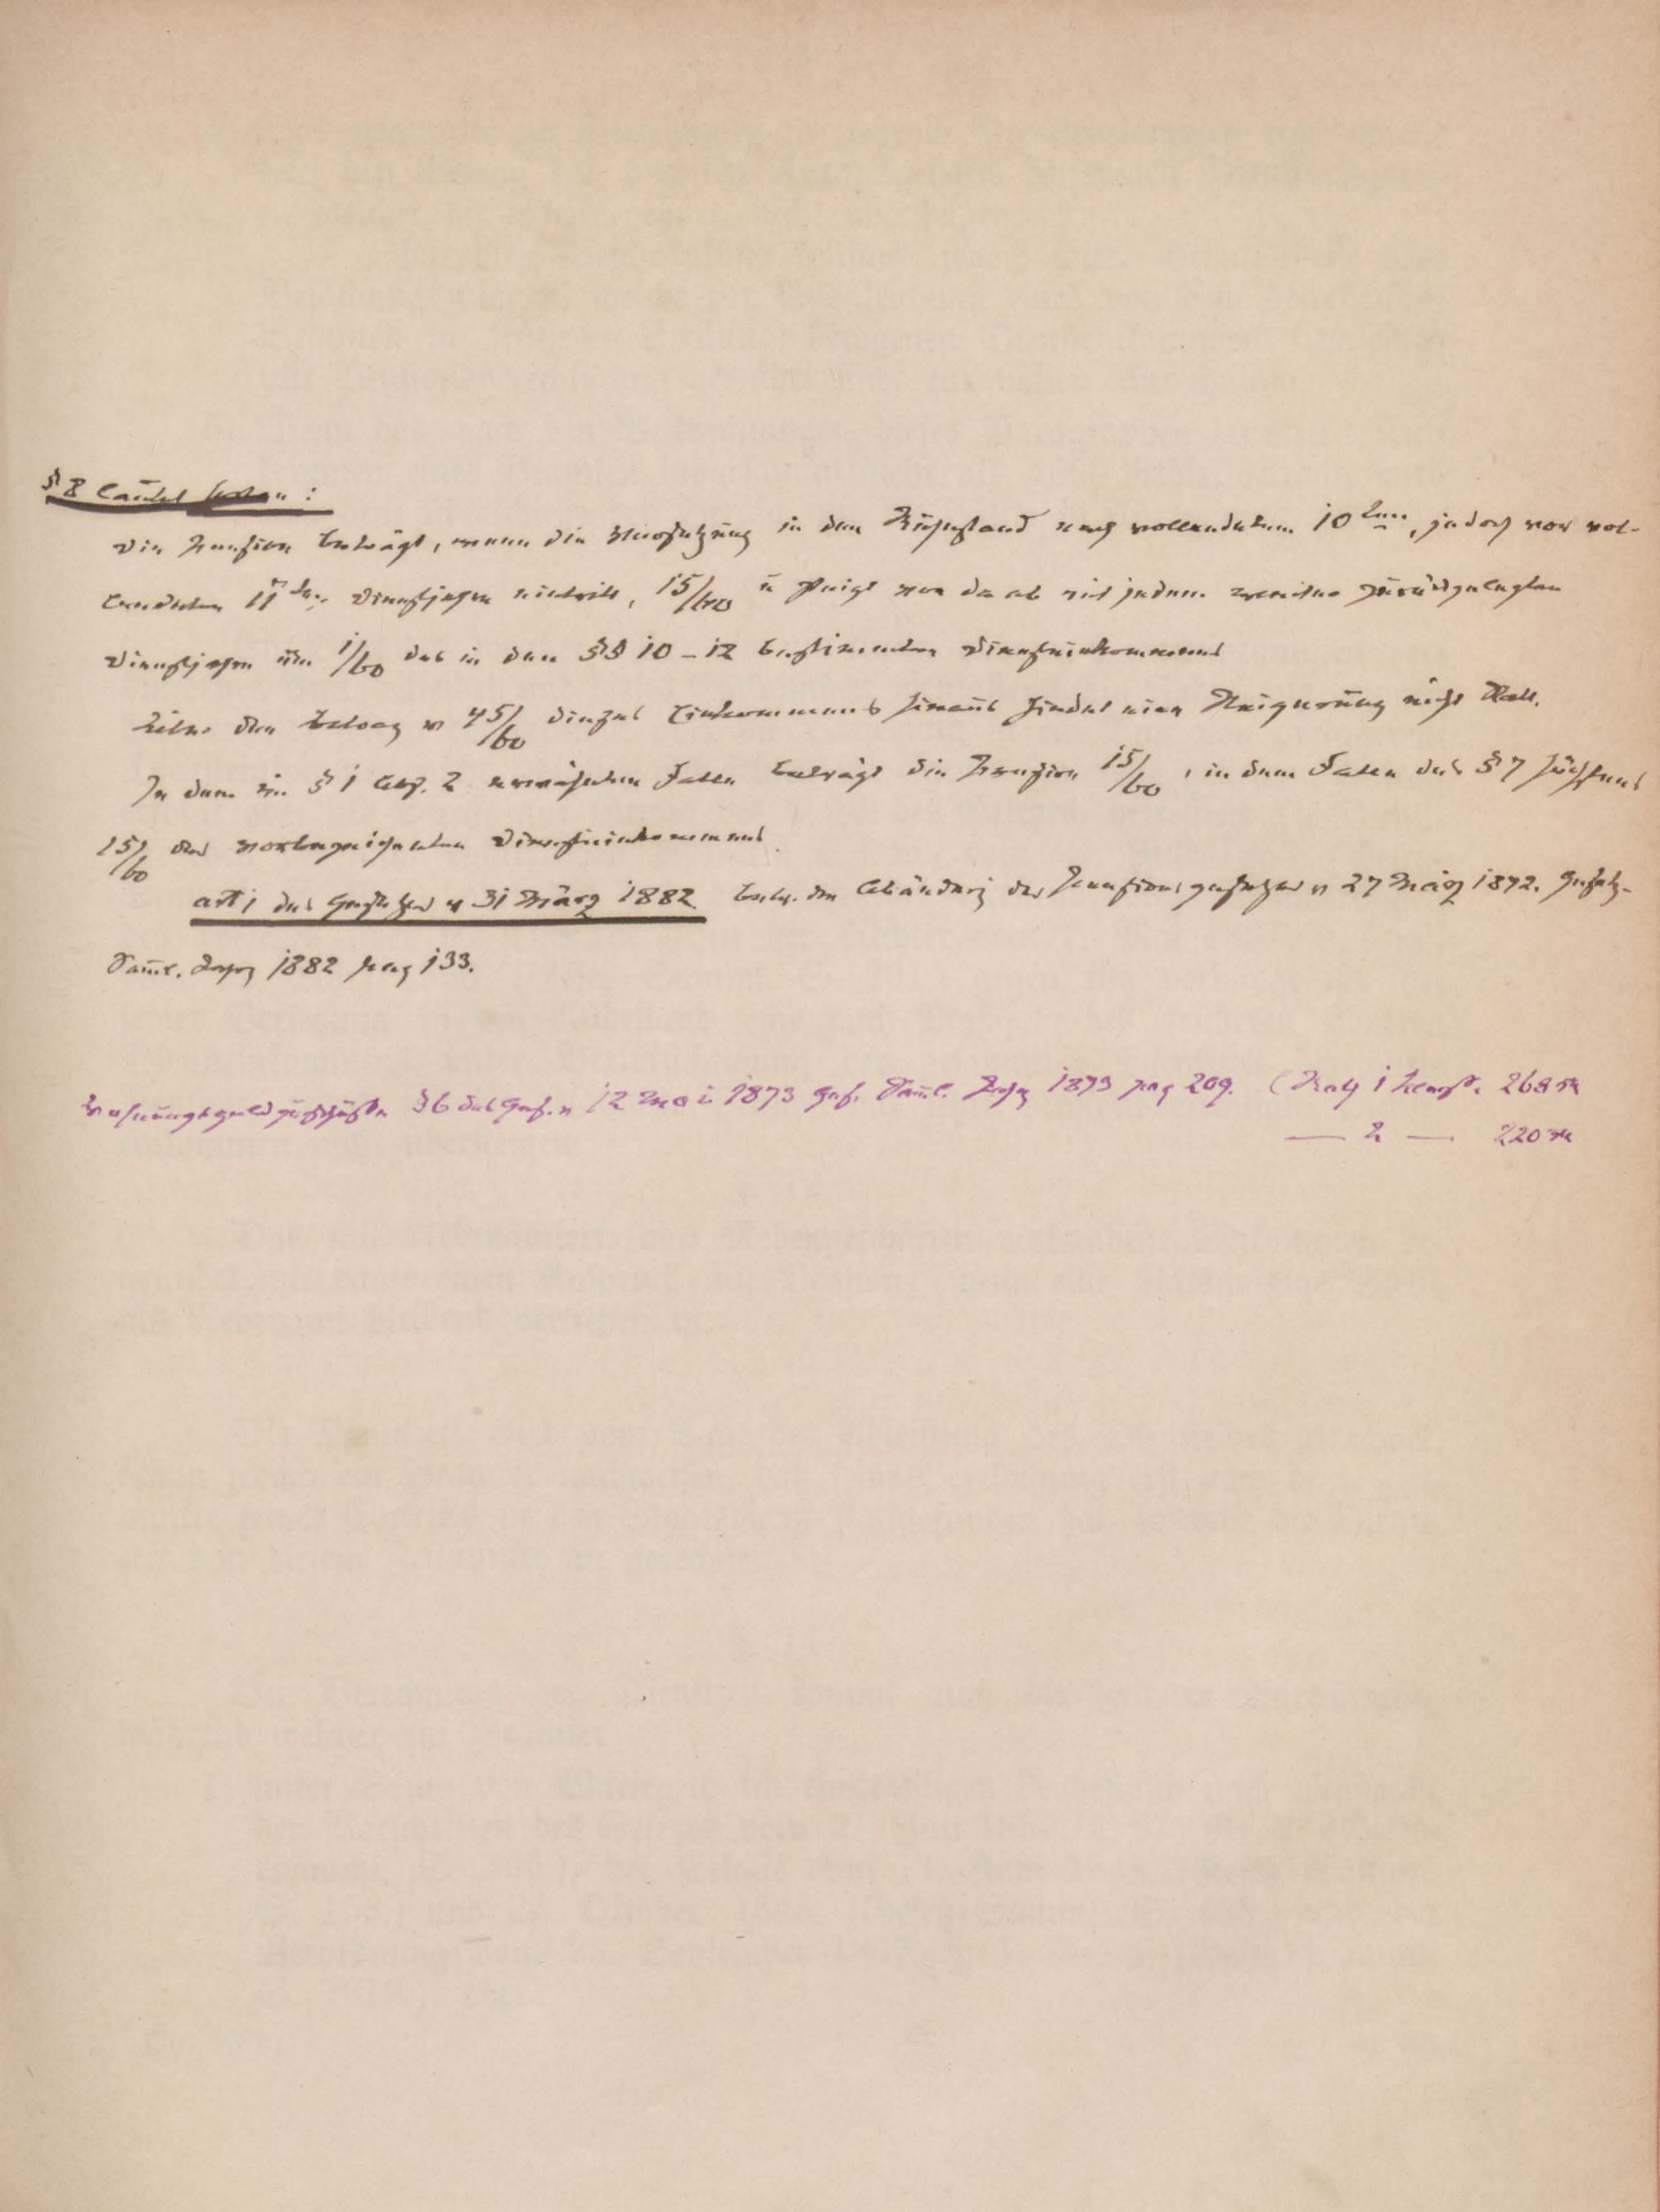 § 8 lautet :
Die Pension beträgt, wenn die Versetzung in den Ruhestand nach vollendetem 10ten, jedoch vor vol-
lendetem 11ten Dienstjahre eintritt, 15/60 u steigt von da ab mit jedem weiter zurückgelegten
Dienstjahre um 1/60 des in den §§ 10 – 12 bestimmten Diensteinkommens
Über den Betrag v 45/60 dieses Einkommens hinaus findet eine Steigerung nicht statt.
In dem im § 1 Abs. 2 erwähnten Falle beträgt die Pension 15/60, in dem Falle des § 7 höchstens
15/60 des vorbezeichneten Diensteinkommens.
art 1 des Gesetzes v 31 März 1882 betr. die Abänderg des Pensionsgesetzes v 27 März 1872. Gesetz-
Saml. Jahrg 1882 pag 133.
Wohnungsgeldzuschüsse § 6 des Ges. v 12 Mai 1873 Ges. Saml. Jahrg 1873 pag 209. (Rath 1 268 M
— 2 — 220 M